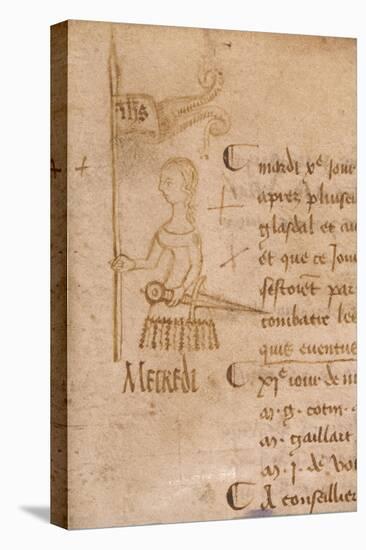 ihs
mardi xe jour
aprez pluseu
glasdal et au
et que ce Jour
sestoient par
combatre les
quis eventus
MECREDI
xie jour de m
m. g. cotin
m. gaillart
m. J. de
A conseillier